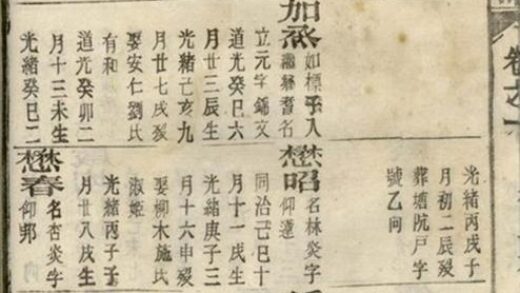 卷之
加烝 如標子入
名
立元字錦文
道光癸巳六
月廿三辰生
光緒己亥九
月廿七戌歿
娶安仁劉氏
有和
道光癸卯二
月十三未生
光緒癸巳二
光緒丙戌子
月初二辰歿
葬塘阬戶字
號乙向
懋昭 名林炎字
仰蓮
同治己巳十
月十一戌生
光緒庚子三
月十六申歿
娶柳木施氏
淑姬
光緒丙子子
月廿八戌生
懋春 名杏炎字
仰邦